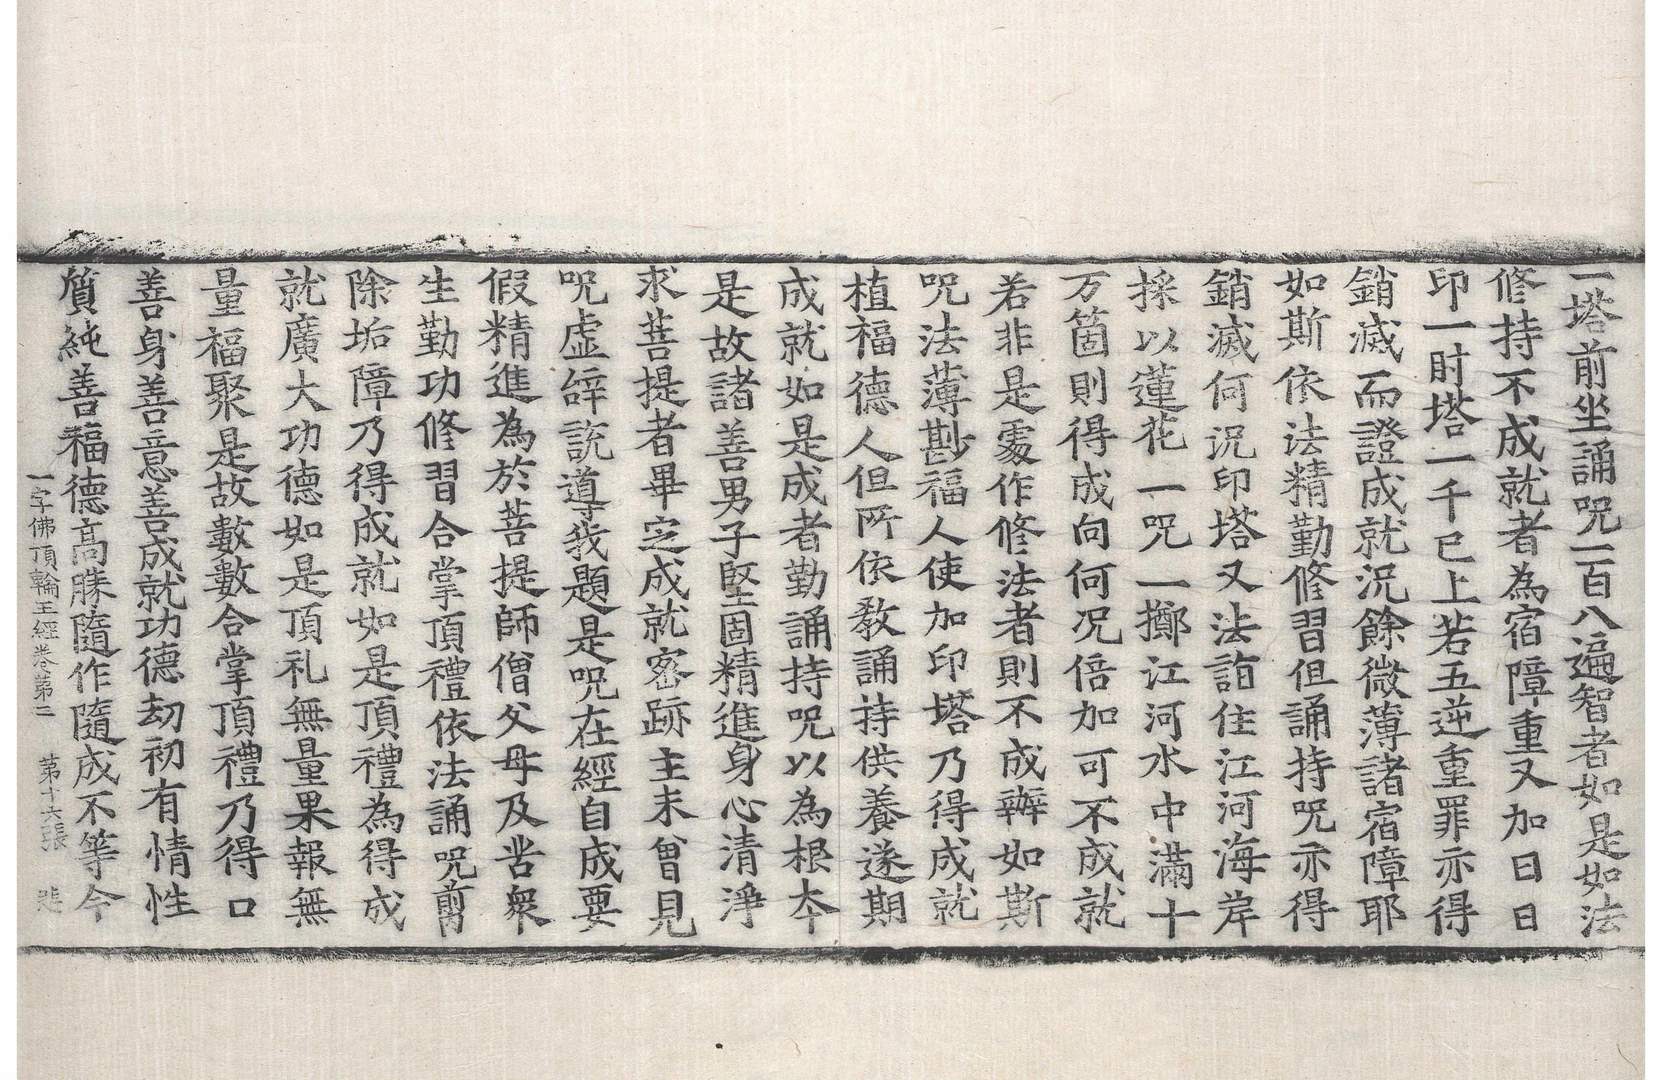 一塔前坐誦呪一百八遍智者如是如法
修持不成就者為宿障重又加日日
印一肘塔一千已上若五逆重罪亦得
銷滅而證成就況餘微薄諸宿障耶
如斯依法精勤修習但誦持呪亦得
銷滅何況印塔又法詣住江河海岸
採以蓮花一呪一擲江河水中滿十
万箇則得成向何況倍加可不成就
若非是處作修法者則不成辦如斯
呪法薄尠福人使加印塔乃得成就
植福德人但所依教誦持供養遂期
成就如是成者勤誦持呪以為根本
是故諸善男子堅固精進身心清淨
求菩提者畢定成就密跡主未曾見
呪虛辞說導我題是呪在經自成要
假精進為於菩提師僧父母及苦眾
生勤功修習合掌頂禮依法誦呪翦
除垢障乃得成就如是頂禮為得成
就廣大功德如是頂礼無量果報無
量福聚是故數數合掌頂禮乃得口
善身善意善成就功德劫初有情性
質純善福德高勝隨作隨成不等今
一字佛頂輪王經卷第三 第十六張